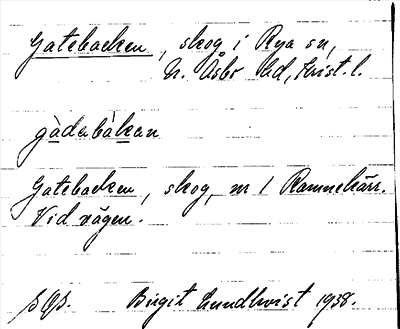 Gatebacken, skog i Rya sn,
N. Åsbo hd, Krist. l.
gàdebàkan
Gatebacken, skog, nr 1 Rammekärr.
Vid vägen.
Birgit Lundkvist 1938.